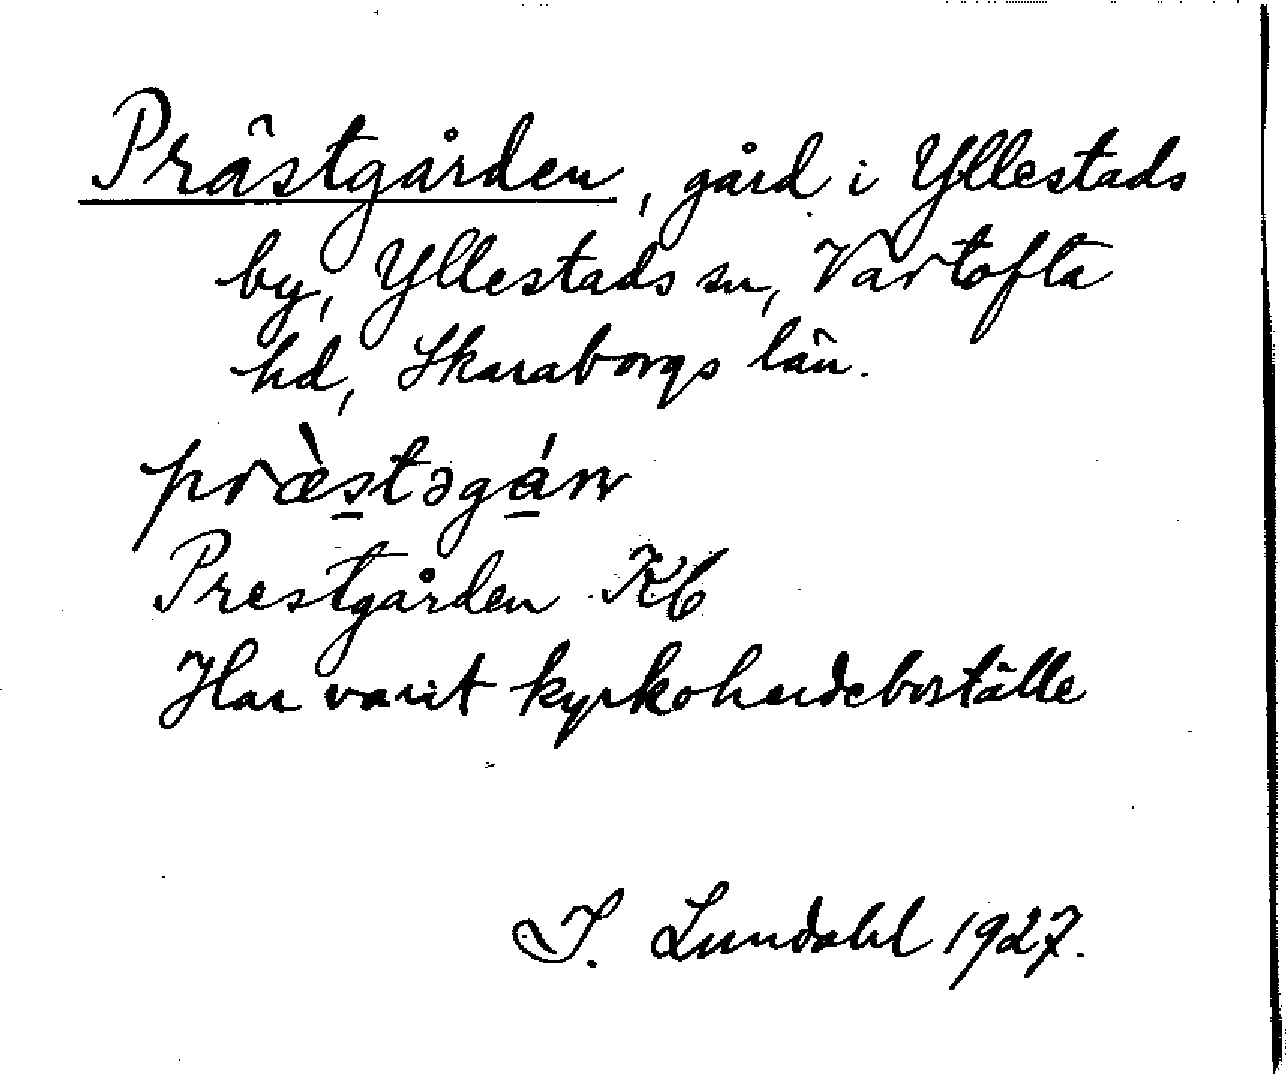 Prästgården, gård i Yllestads
by, Yllestads sn, Vartofta
hd, Skaraborgs län.
præ̀stəgán
Prestgården Kb
Har varit kyrkoherdeboställe
I. Lundahl 1927.